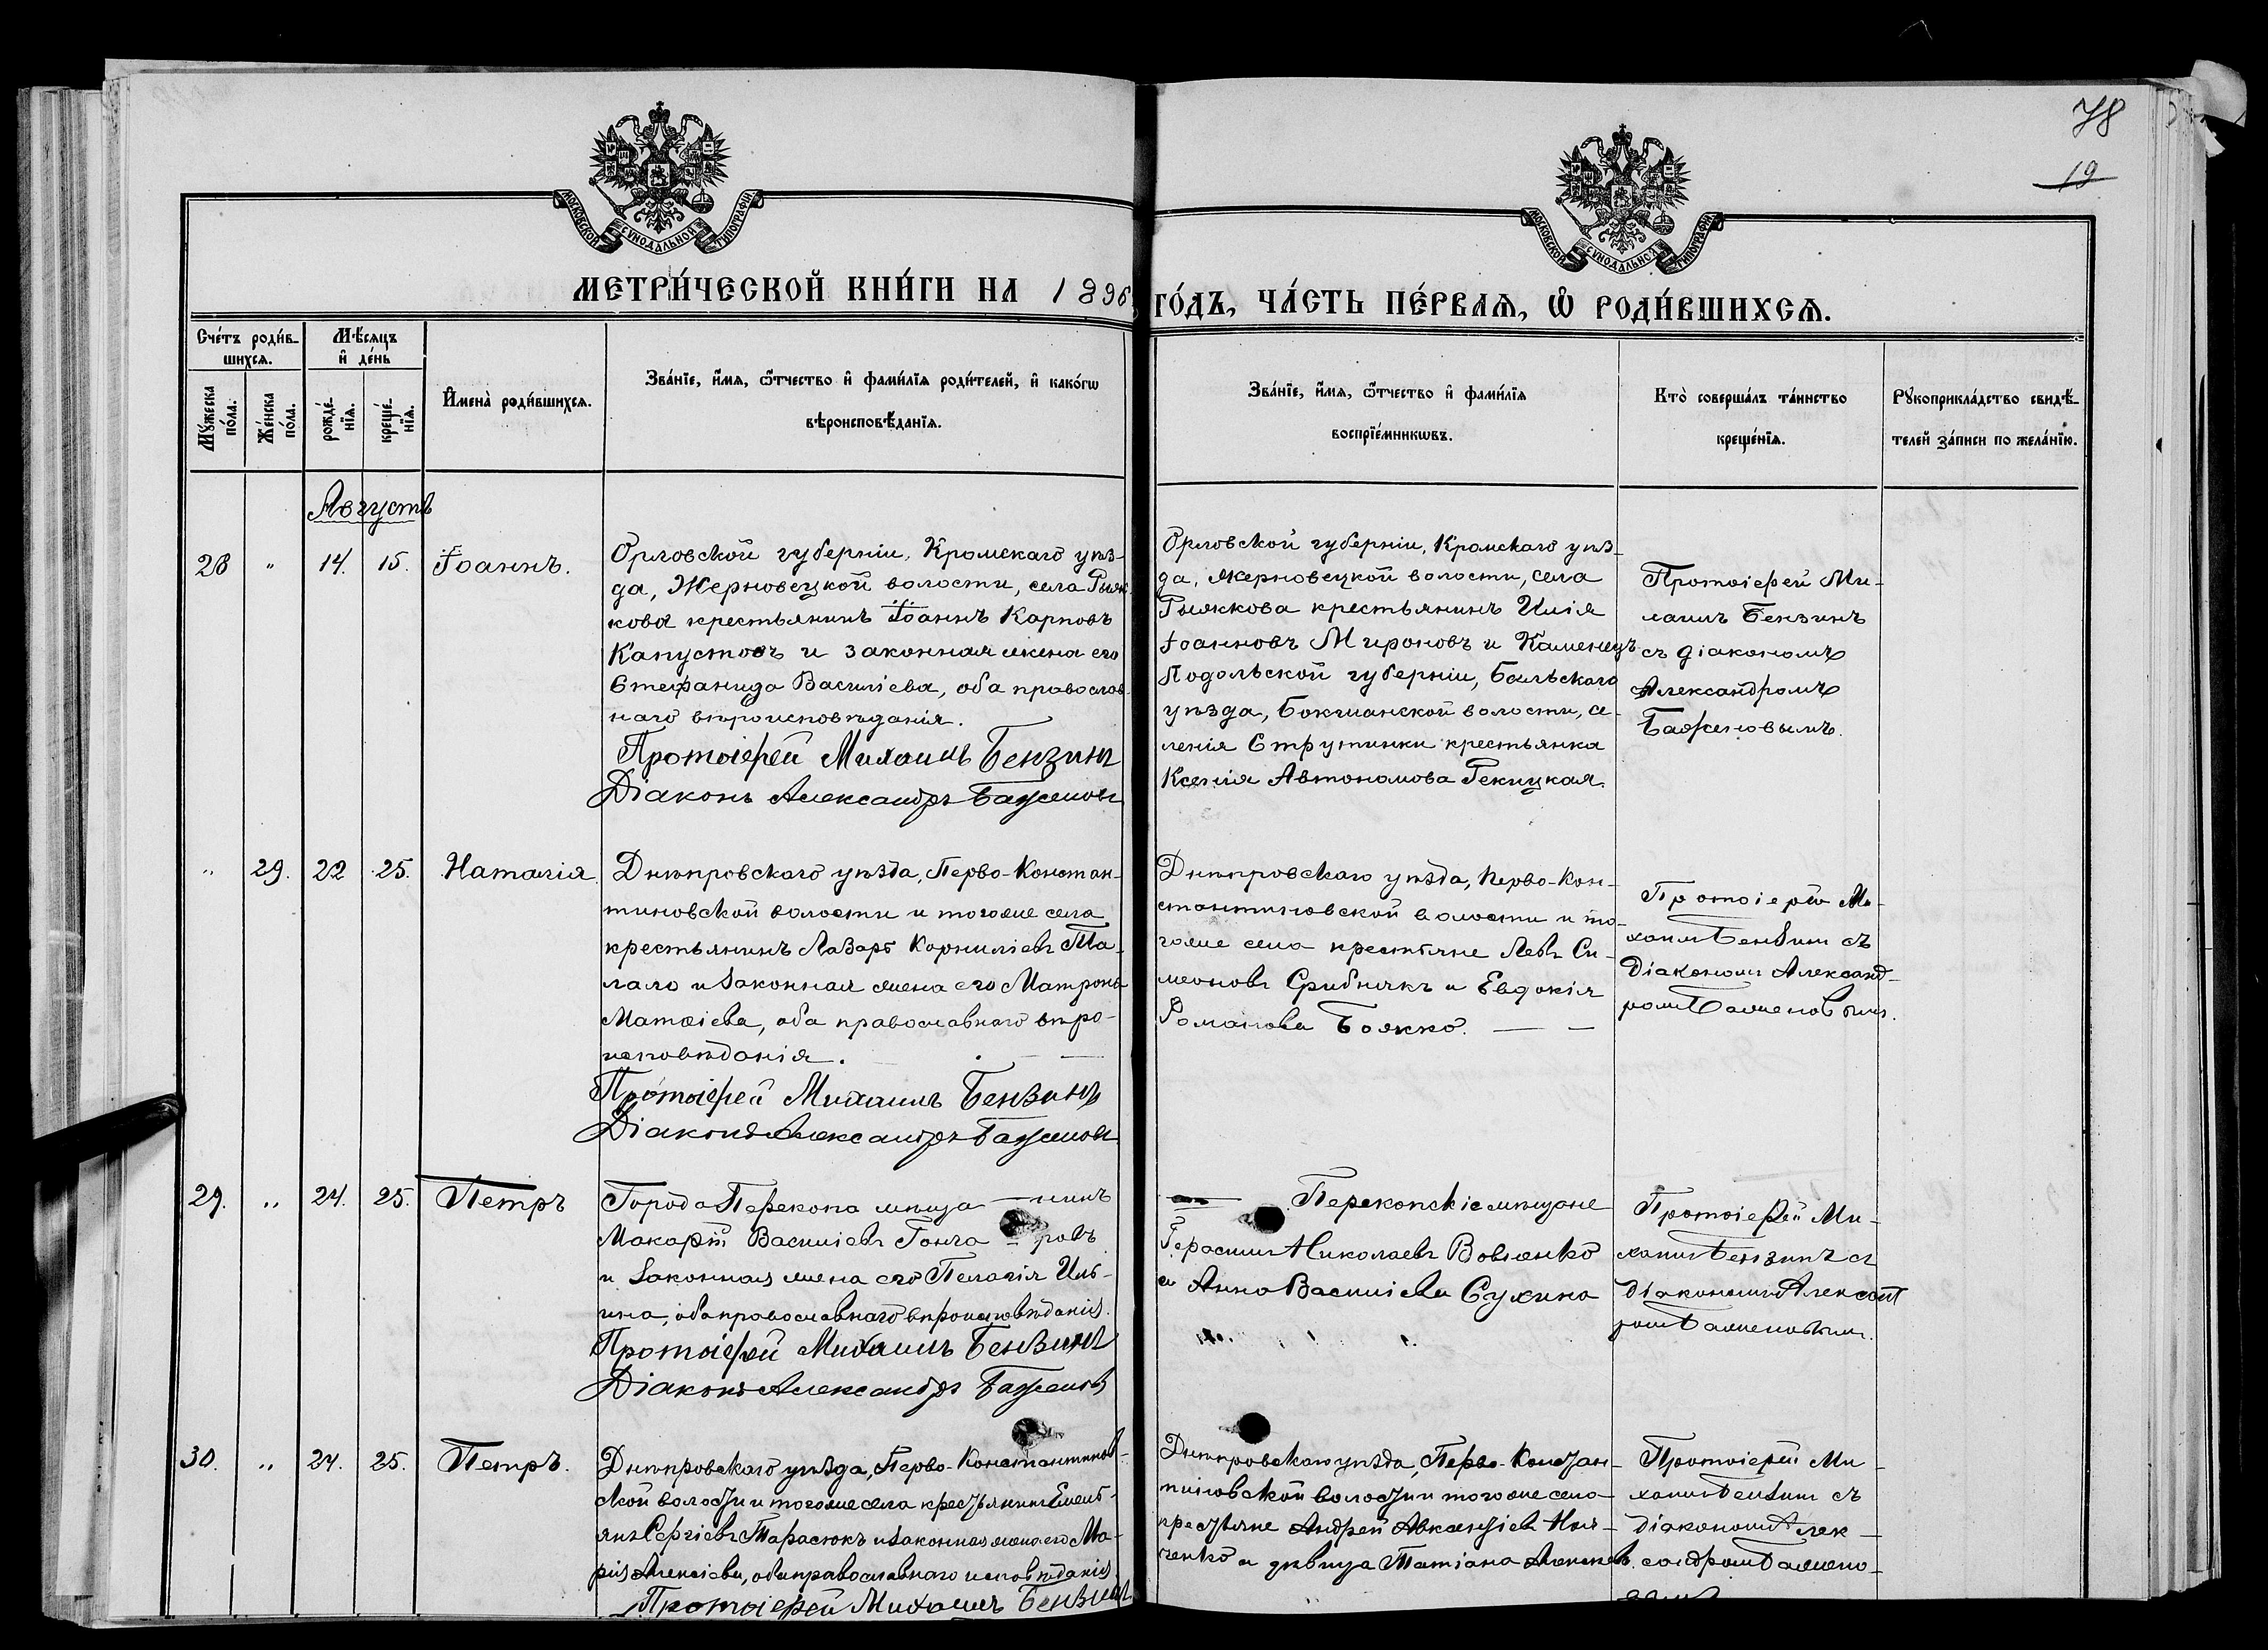 78
19
МОСКОВСКОЙ СУНОДАЛЬНОЙ ТИПОГРАФІИ
МОСКОВСКОЙ СУНОДАЛЬНОЙ ТИПОГРАФІИ
МЕТРИ́ЧЕСКОЙ КНИ́ГИ НА 1896
ГО́ДЪ, ЧА́СТЬ ПЕ́РВАѦ, Ѡ҆ РОДИ́ВШИХСѦ.
Сче́тъ роди́в-
шихсѧ.
Мꙋ́жеска по́ла.
Же́нска по́ла.
Мѣ́сѧцъ
и҆ де́нь
рожде́-
нїѧ.
креще́-
нїѧ.
И҆мена̀ роди́вшихсѧ.
Зва́нїе, и҆́мѧ, ѻ҆́тчество и҆ фами́лїѧ роди́телей, и҆ како́гѡ
вѣроисповѣ́данїѧ.
Зва́нїе, и҆́мѧ, ѻ҆́тчество и҆ фами́лїѧ
воспрїе́мникѡвъ.
Кто̀ соверша́лъ та́инство
креще́нїѧ.
Рꙋкоприкла́дство свидѣ́-
телей за́писи по жела́нїю.
Августъ
28 " 14. 15. Іоаннъ.
Орловской губерніи, Кромскаго уѣз-
да, Жерновецкой волости, села Рыж-
кова крестьянинъ Іоаннъ Карповъ
Капустовъ и законная жена его
Стефанида Василіева, оба православ-
наго вѣроисповѣданія.
Протоіерей Михаилъ Бензинъ
Діаконъ Александръ Баженовъ
Орловской губерніи, Кромскаго уѣз-
да, Жерновецкой волости, села
Рыжкова крестьянинъ Илія
Іоанновъ Мироновъ и Каменецъ
Подольской губерніи, Бальскаго
уѣзда, Бокшанской волости, се-
ленія Струтинки крестьянка
Ксенія Автономова Рекицкая.
Протоіерей Ми-
хаилъ Бензинъ
съ діакономъ
Александромъ
Баженовымъ.
" 29. 22 25. Наталія.
Днѣпровскаго уѣзда, Перво-Констан-
тиновской волости и тогоже села
крестьянинъ Лазарь Корниліевъ Та-
лало и законная жена его Матрона
Матѳіева, оба православнаго вѣро-
исповѣданія.
Протоіерей Михаилъ Бензинъ
Діаконъ Александръ Баженовъ
Днѣпровскаго уѣзда, Перво-Кон-
стантиновской волости и то-
гоже села крестьяне Левъ Си-
меоновъ Срибнякъ и Евдокія
Романова Божко.
Протоіерей Ми-
хаилъ Бензинъ съ
діакономъ Александ-
ромъ Баженовымъ.
29. " 24. 25. Петръ
Города Перекопа мѣща — нинъ
Макарій Василіевъ Гонча — ровъ
и законная жена его Пелагія Иль-
ина, оба православнаго вѣроисповѣданія.
Протоіерей Михаилъ Бензинъ
Діаконъ Александръ Баженовъ
Перекопскіе мѣщане
Герасимъ Николаевъ Вовченко
и Анна Василіева Сухина
Протоіерей Ми-
хаилъ Бензинъ съ
діакономъ Александ
ромъ Баженовымъ.
30. " 24. 25. Петръ.
Днѣпровскаго уѣзда, Перво-Константинов-
ской волости и тогоже села крестьянинъ Емель-
янъ Сергіевъ Тарасюкъ и законная жена его Ма-
рія Алексіева, оба православнаго исповѣданія
Протоіерей Михаилъ Бензинъ
Днѣпровскаго уѣзда, Перво-Констан-
тиновской волости и тогоже села
крестьяне Андрей Авксентіевъ
ченко и дѣвица Татіана
Протоіерей Ми-
хаилъ Бензинъ съ
діакономъ Алек-
сандромъ Бажено-
вымъ